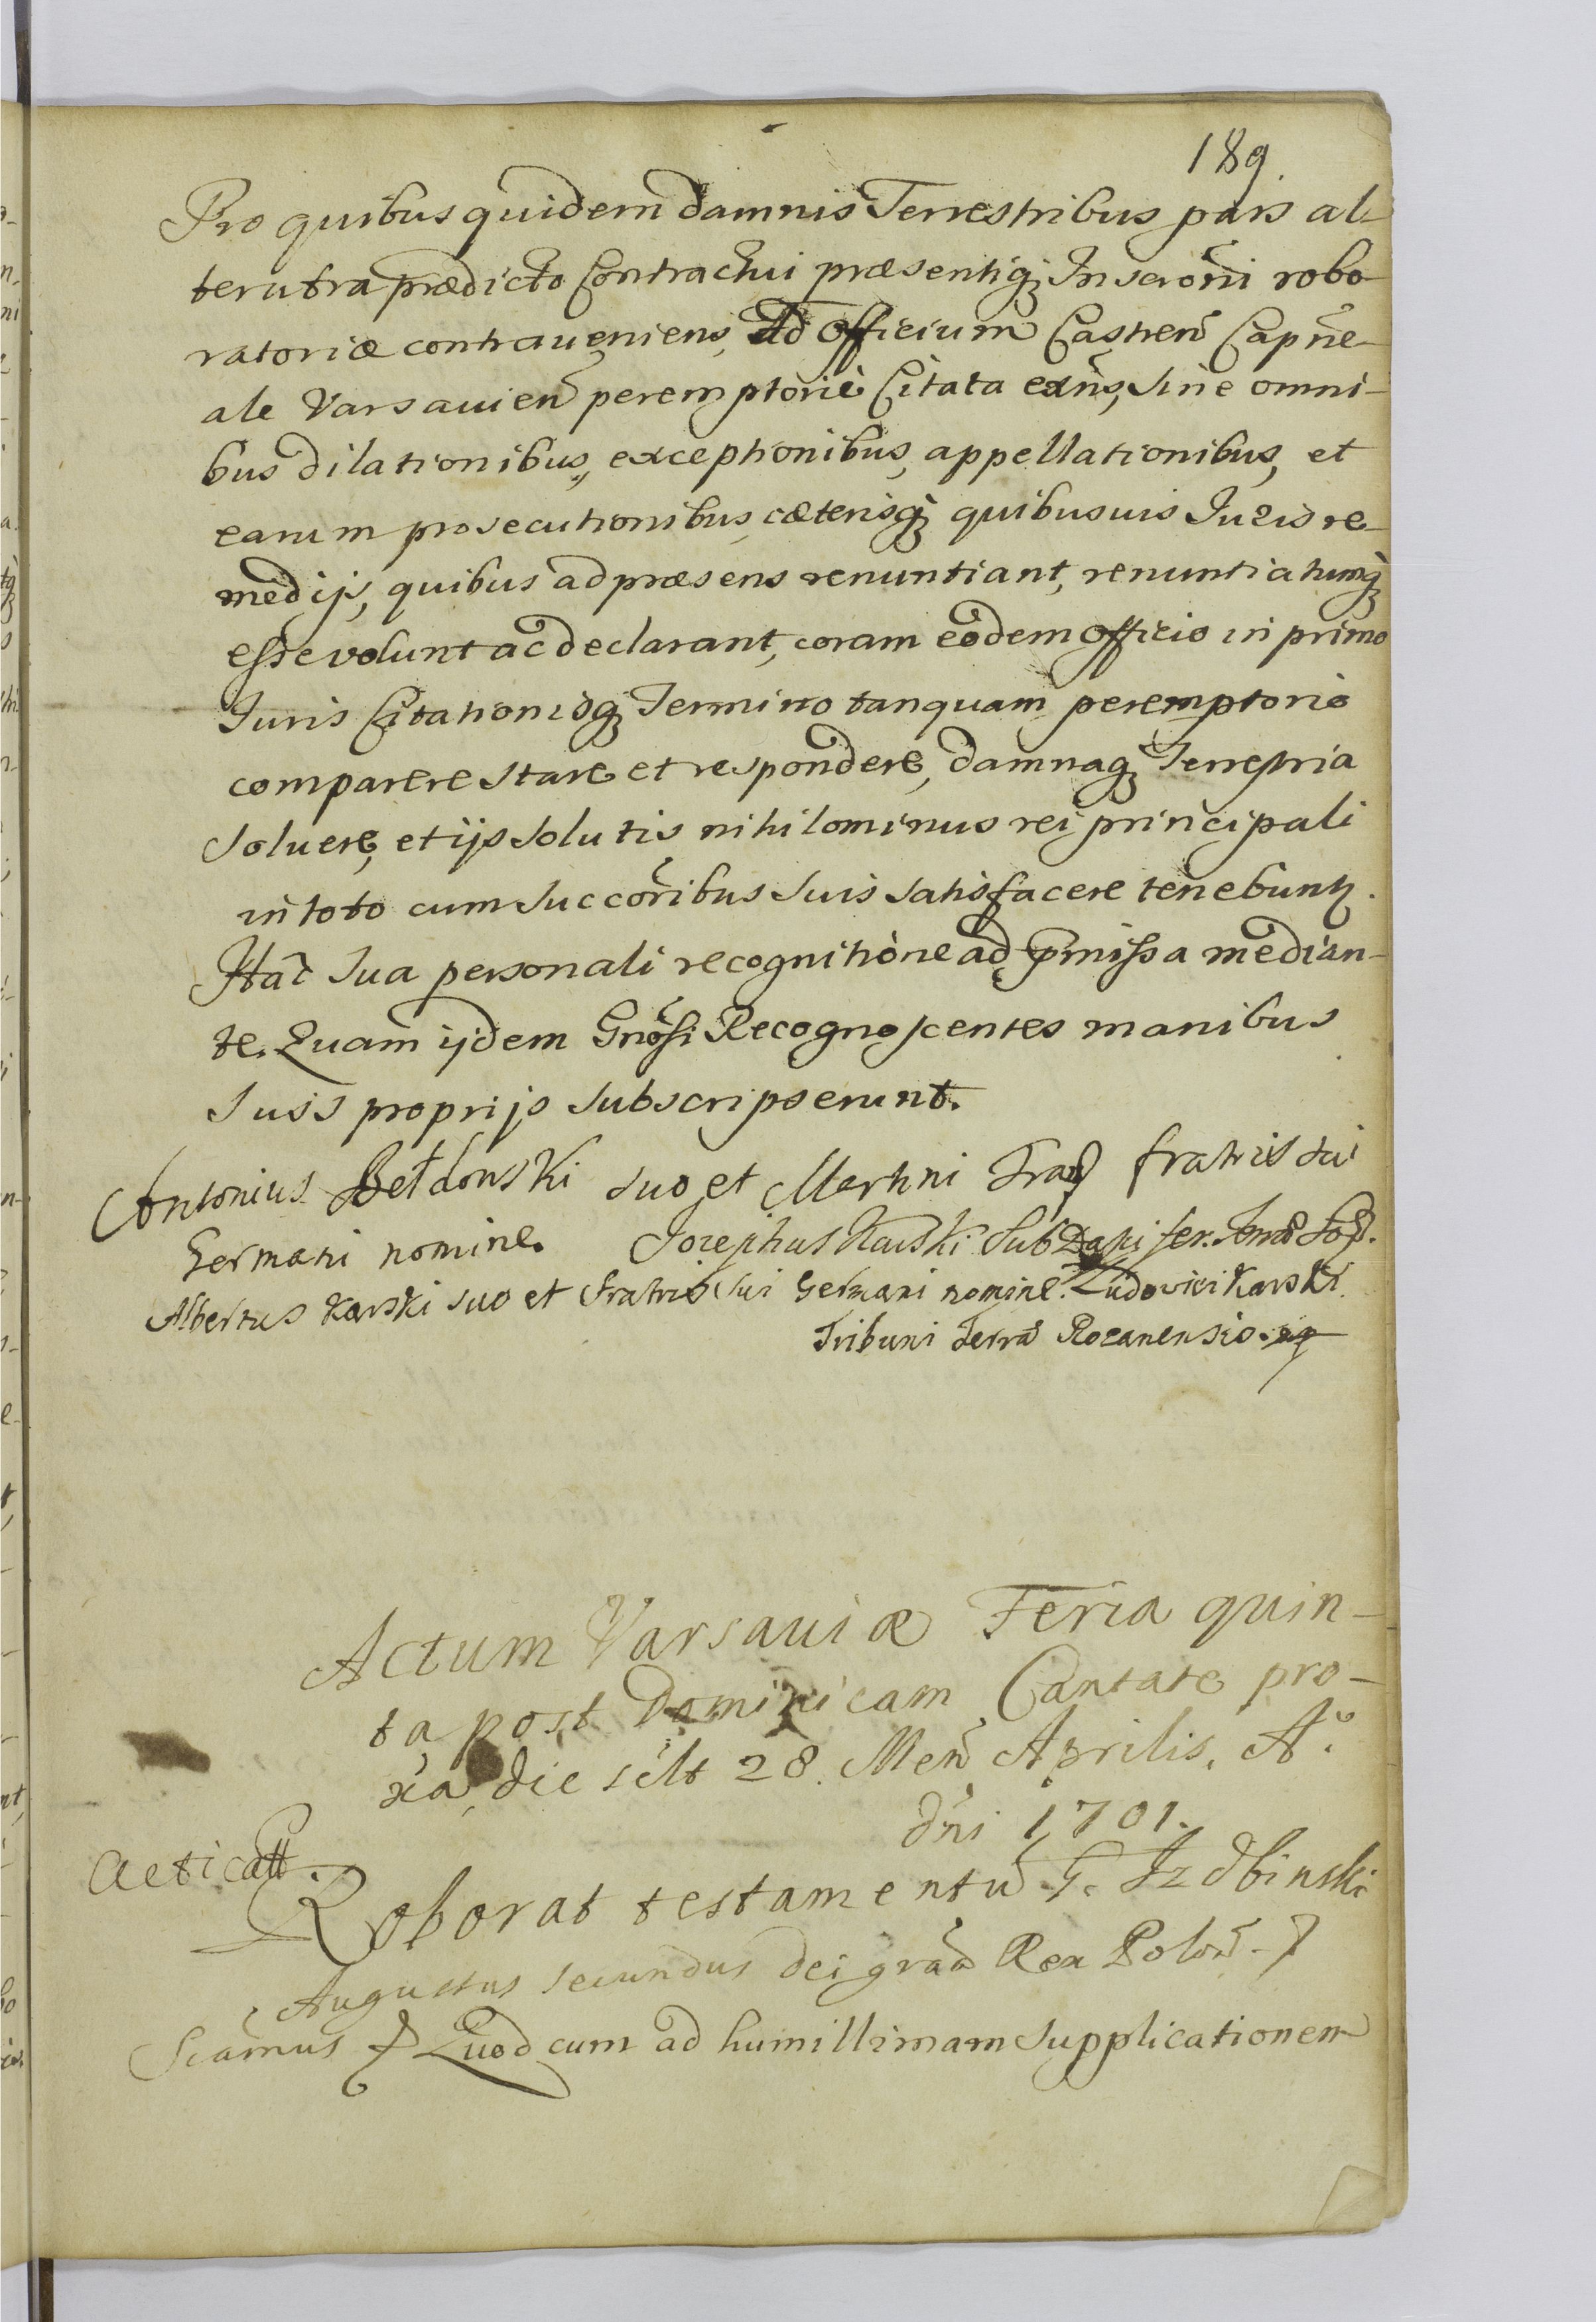 189.
Pro quibus quidem damnis Terrestribus pars al-
terutra prædicto Contractui præsentiq; Inscrõni robo-
ratoriæ contraueniens, Ad Officium Castreñ Capñe-
ale Varsauieñ peremptoriè Citata exñs, sine omni-
bus dilationibus, exceptionibus, appellationibus, et
earum prosecutionibus, cæterisq; quibusuis Iuris re-
medijs, quibus ad præsens renuntiant, renuntiatumq;
esse volunt ac declarant, coram eodem Officio in primo
Iuris Citationisq; Termino tanquam peremptorio
comparere stare et respondere, damnaq; Terrestria
soluere, et ijs solutis nihilominus rei principali
in toto cum succõribus suis satisfacere tenebuntr.
Hac sua personali recognitione ad præmissa median-
te. Quam ijdem Gnõsi Recognoscentes manibus
suis proprijs subscripserunt.
Antonius Bełdowski suo et Martini fratris sui
Germani nomine. Josephus Karski SubDapifer.
Albertus Karski suo et fratris sui Germani nomine. Ludovici Karski
Tribuni Terræ Rozanensis.
Actum Varsauiæ Feria quin-
ta post Dominicam Cantate pro-
xa, die sclt 28. Meñ Aprilis. Aº.
dñi 1701.
Acticatt
Roborat testamentũ G. Izdbinski
Augustus secundus dei grãa Rex Poloñ.
Sciamus Quod cum ad humillimam supplicationem